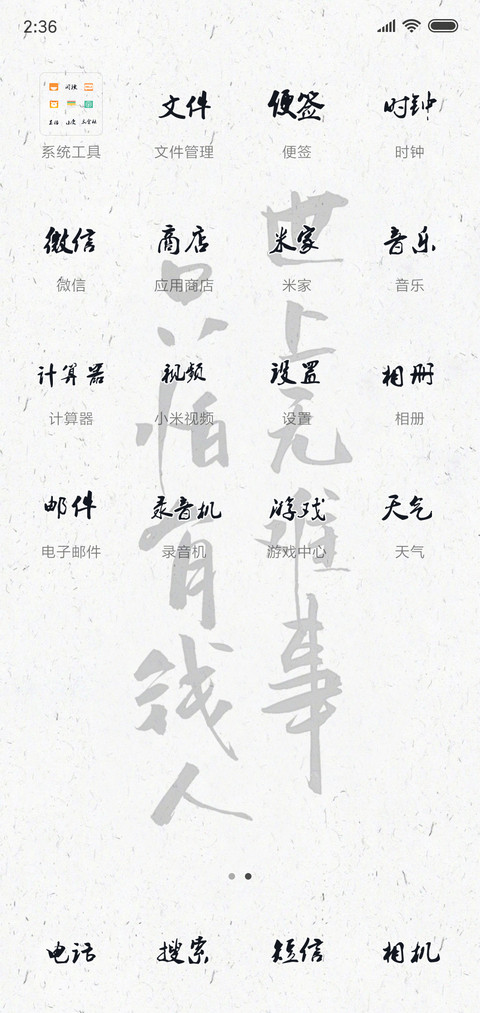 2:36
文件 便签 时钟
系统工具 文件管理 便签 时钟
微信 商店 米家 音乐
微信 应用商店 米家 音乐
计算器 视频 设置 相册
计算器 小米视频 设置 相册
邮件 录音机 游戏 天气
电子邮件 录音机 游戏中心 天气
世上无难事
只怕有钱人
电话 搜索 短信 相机